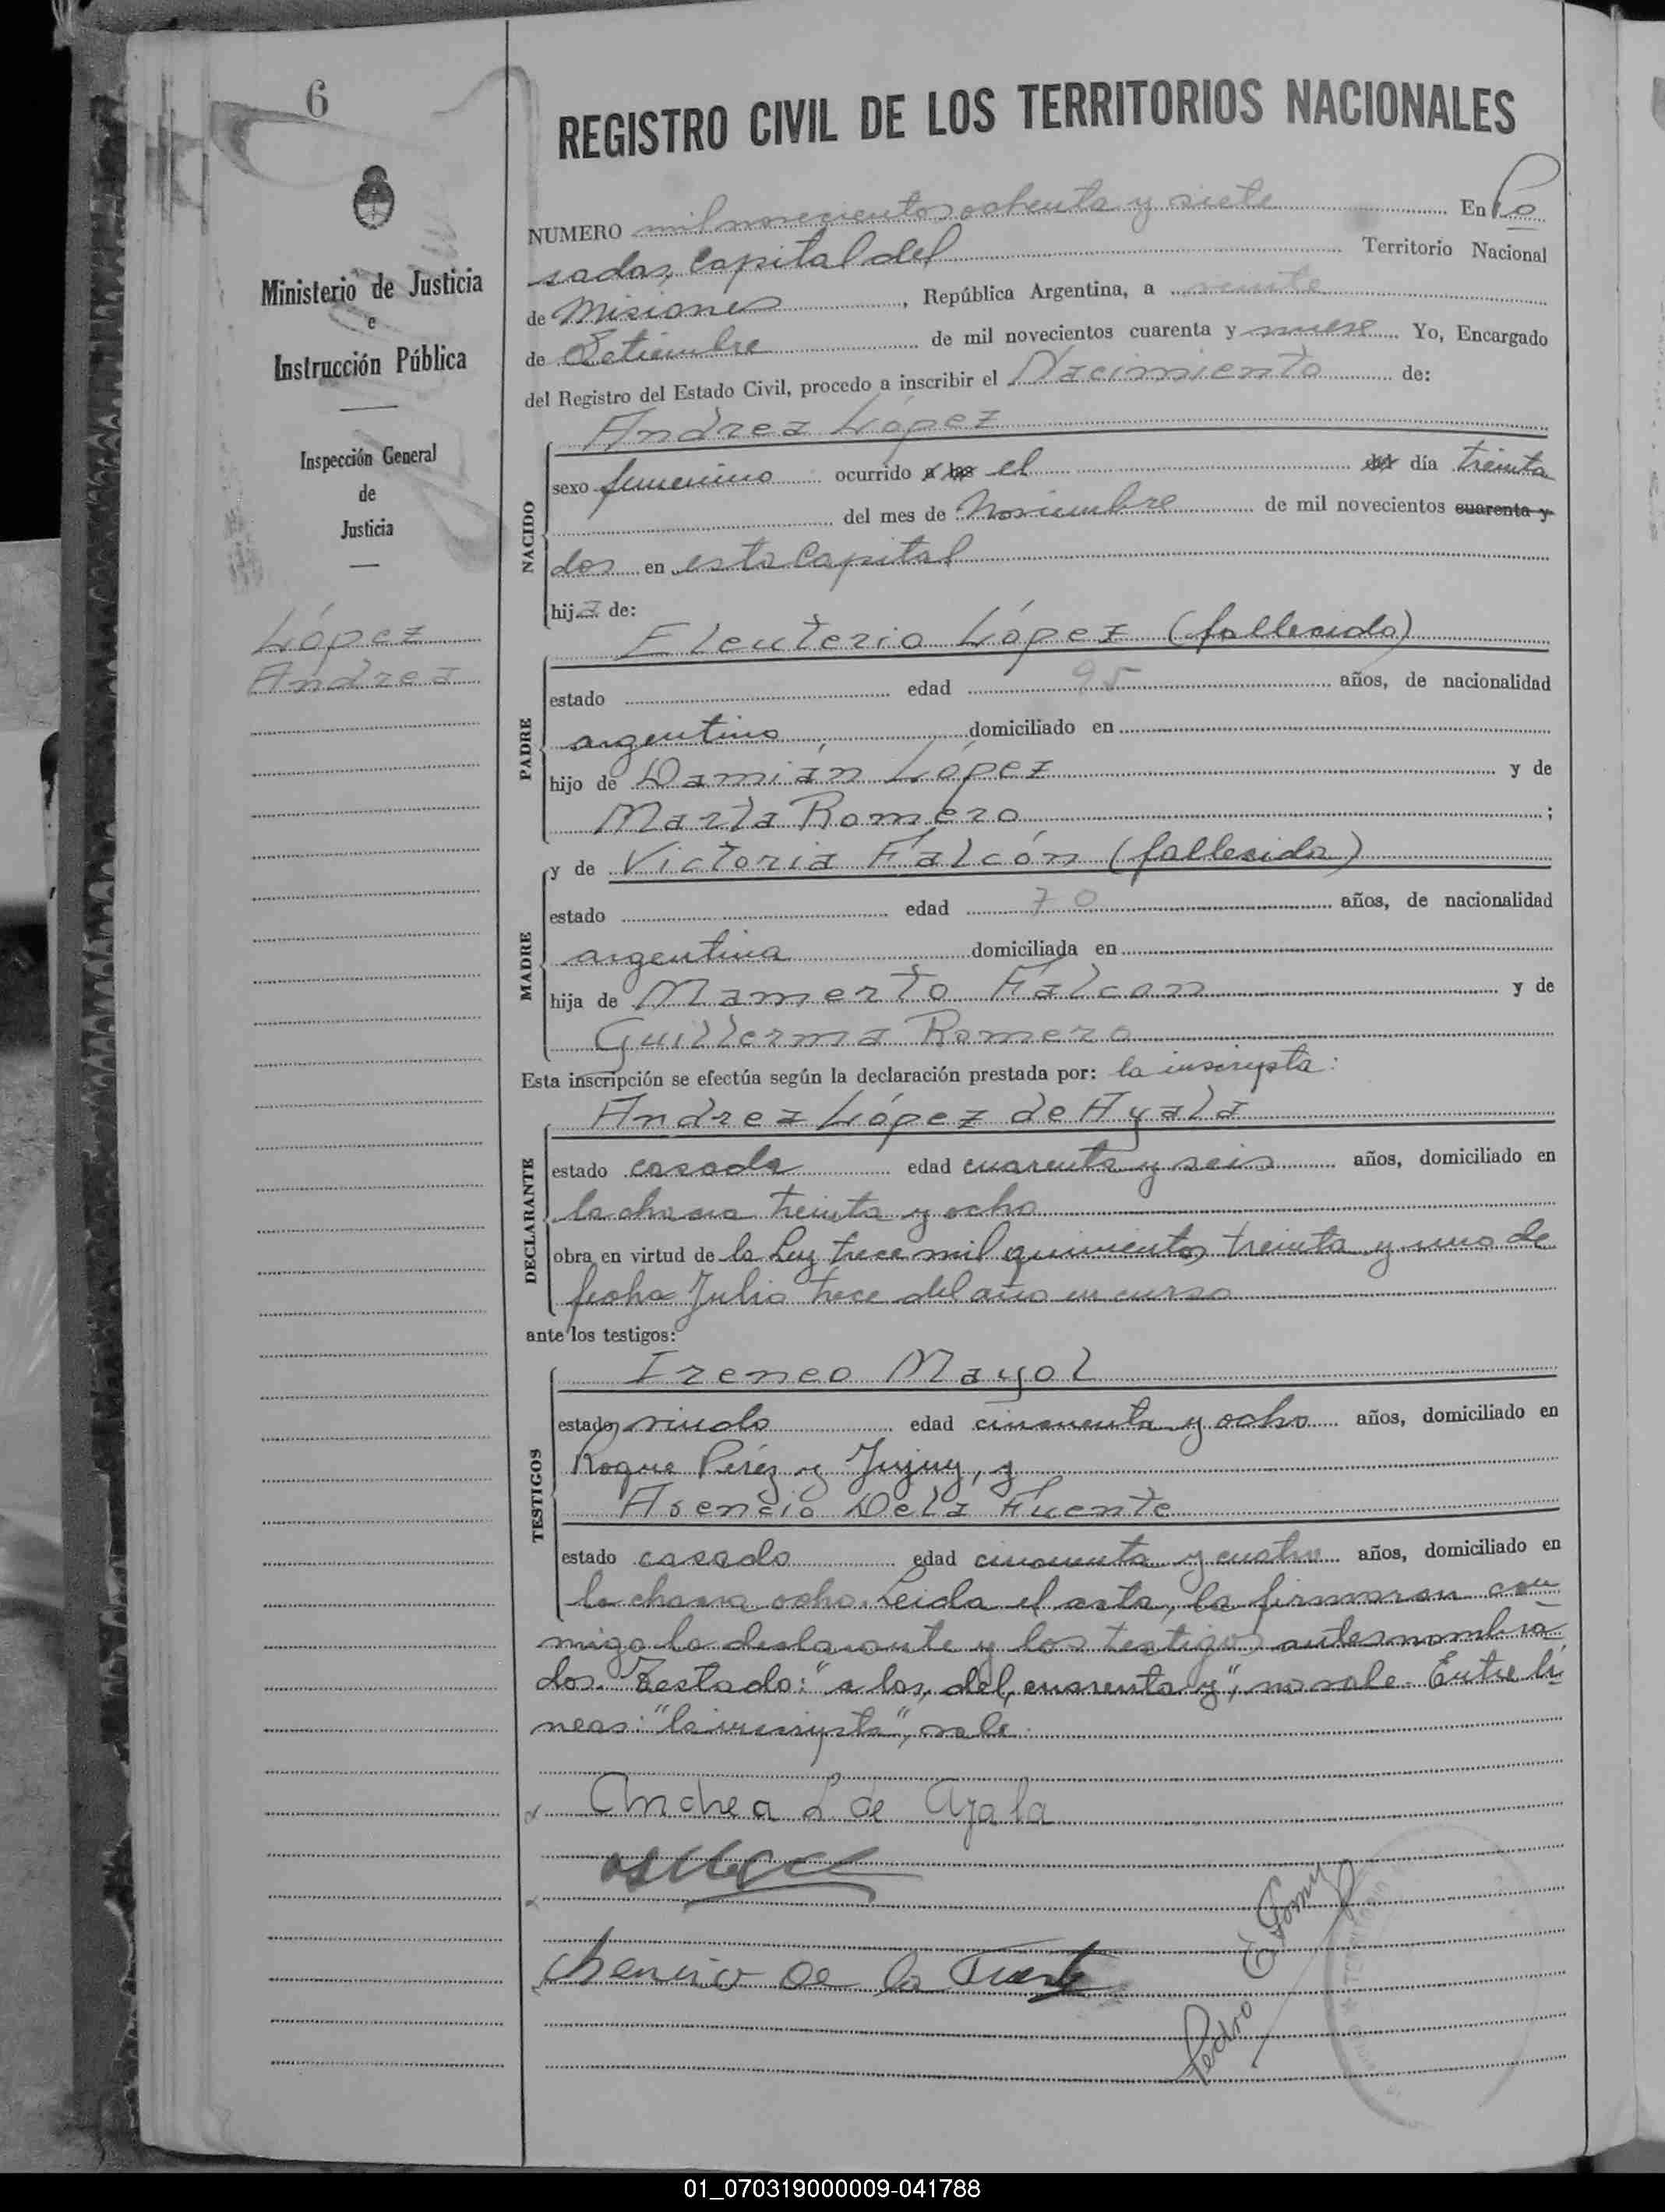 6
Ministerio de Justicia
e
Instrucción Pública
Inspección General
de
Justicia
López
Andrea
REGISTRO CIVIL DE LOS TERRITORIOS NACIONALES
NUMERO mil novecientos ochenta y siete En Po
sadas, Capital del Territorio Nacional
de Misiones, República Argentina, a veinte
de Setiembre de mil novecientos cuarenta y nueve Yo, Encargado
del Registro del Estado Civil, procedo a inscribir el Nacimiento de:
Andrea López
NACIDO
sexo femenino ocurrido a las el del día treinta
del mes de Noviembre de mil novecientos cuarenta y
dos en esta Capital
hija de:
Eleuterio López (fallecido)
PADRE
estado edad 95 años, de nacionalidad
argentino domiciliado en
hijo de Damián López y de
María Romero ;
y de Victoria Falcón (fallecida)
MADRE
estado edad 70 años, de nacionalidad
argentina domiciliada en
hija de Mamerto Falcon y de
Guillerma Romero
Esta inscripción se efectúa según la declaración prestada por: la inscripta:
Andrea López de Ayala
DECLARANTE
estado casada edad cuarenta y seis años, domiciliado en
la chacra treinta y ocho
obra en virtud de la Ley trece mil quinientos treinta y uno de
fecha Julio trece del año en curso
ante los testigos:
Ireneo Mayol
TESTIGOS
estado viudo edad cincuenta y ocho años, domiciliado en
Roque Pérez y Jujuy, y
Asencio De la Fuente
estado casado edad cincuenta y cuatro años, domiciliado en
la chacra ocho. Leida el acta, la firmaron con
migo la declarante y los testigos antesnombra
dos. Testado: "a las, del, cuarenta y", no vale. Entre lí
neas: "la inscripta", vale.
Andrea L de Ayala
Asencio de la Fuente
Pedro E Gomez
01_070319000009-041788